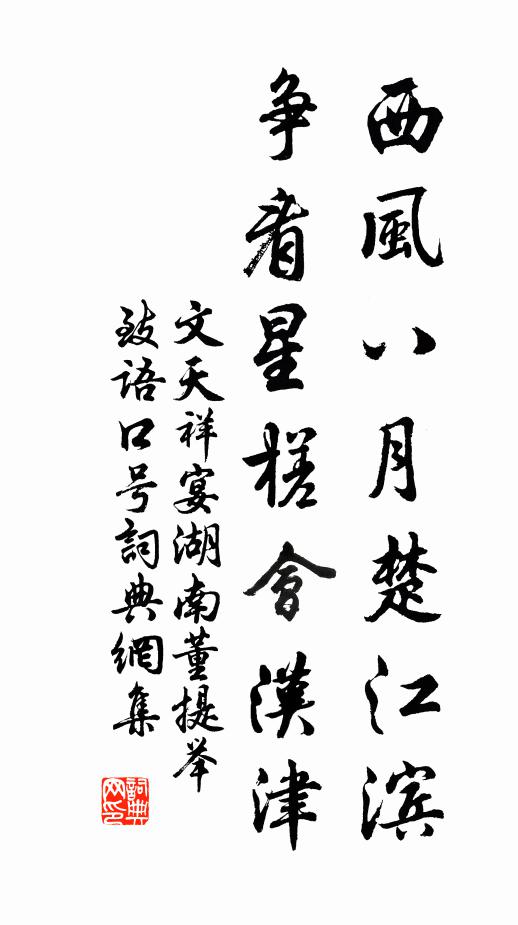 西風八月楚江滨
争看星槎會漢津
文天祥宴湖南董提举
致语口号詞典網集
詞典网印